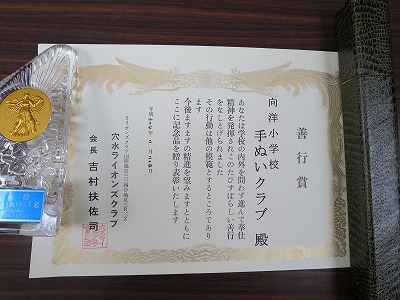 善行賞
向洋小学校
手ぬいクラブ 殿
あなたは学校の内外を問わず進んで奉仕
精神を発揮されこのたびすばらしい善行
をなしとげられました
その行動は他の模範とするところであり
ます
今後ますますの精進を望みますとともに
ここに記念品を贈り表彰いたします
穴水ライオンズクラブ
会長 吉村扶佐司